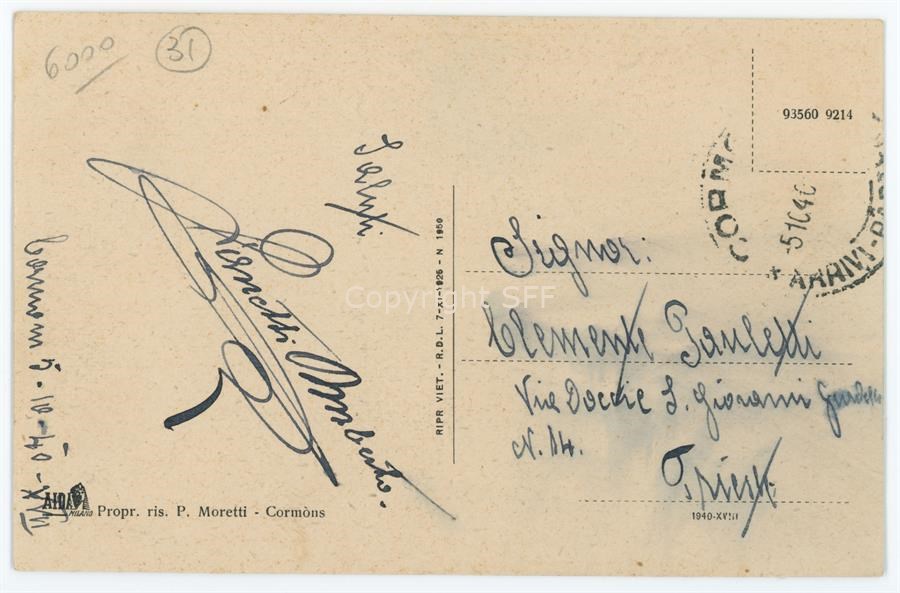 6000
31
93560 9214
CORM
5 10 40
ARRIVI-PAR
Saluti
Zianetti Umberto.
Cormons 5-10-40-XVIII
RIPR VIET. - R.D.L. 7-XI-1925 - N 1950
Signor:
Clemente Pauletti
Via Doccie S. Giovanni
N. 14.
Trieste
Copyright SFF
AIDA
MILANO
Propr. ris. P. Moretti - Cormòns
1940-XVIII